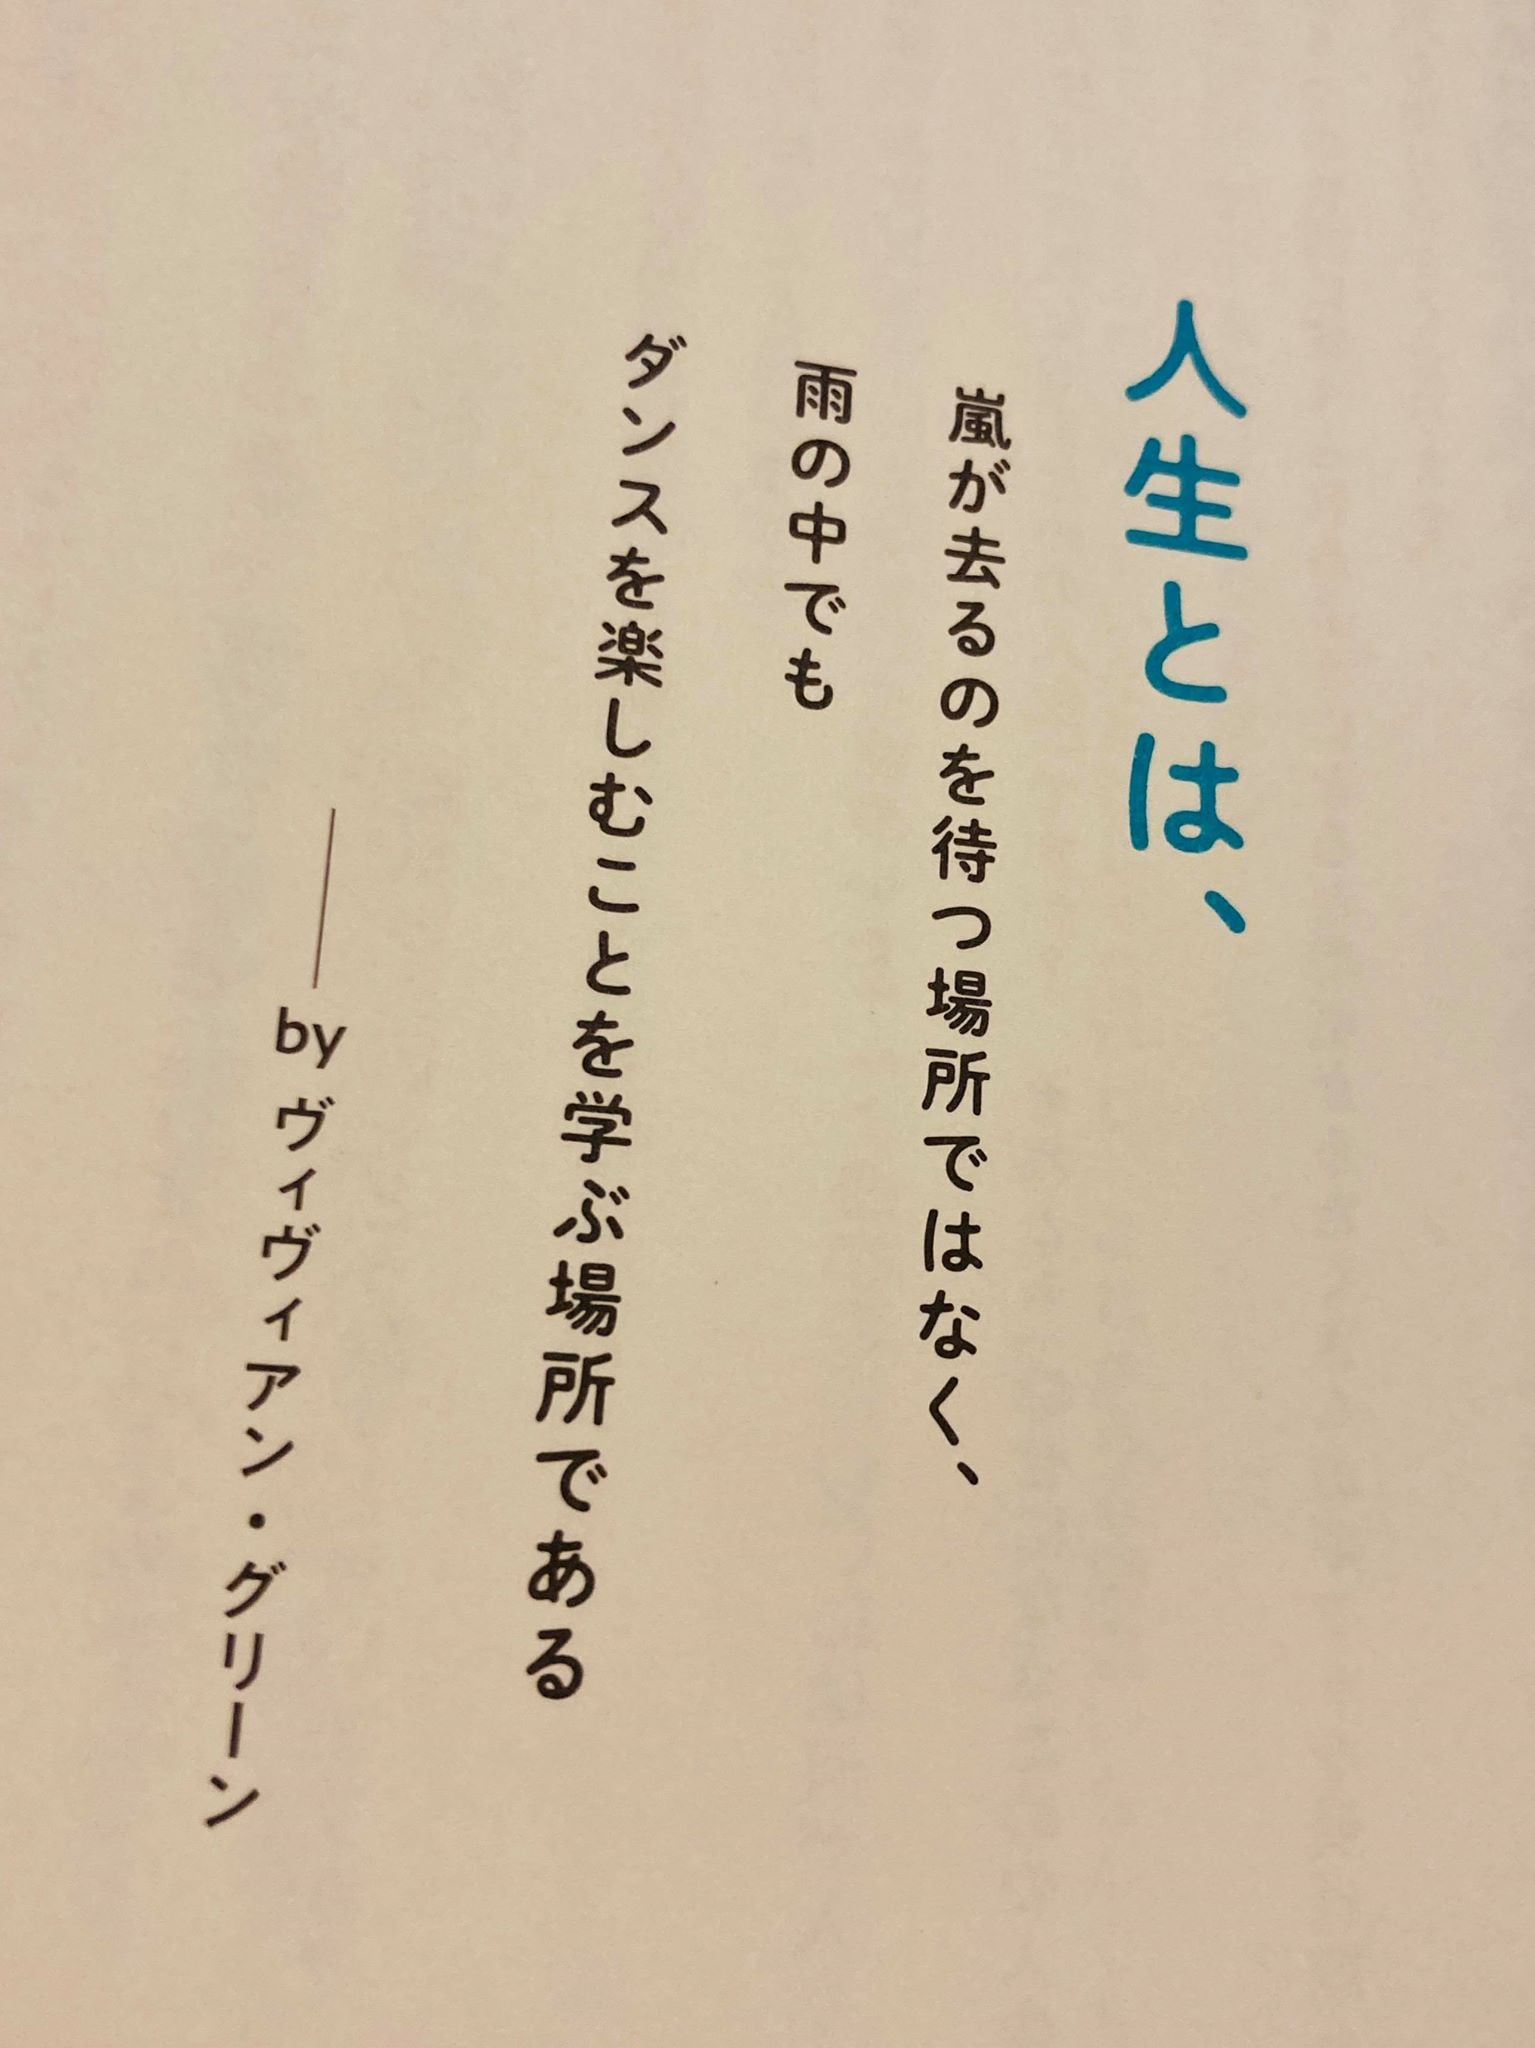 人生とは、
嵐が去るのを待つ場所ではなく、
雨の中でも
ダンスを楽しむことを学ぶ場所である
——by ヴィヴィアン・グリーン